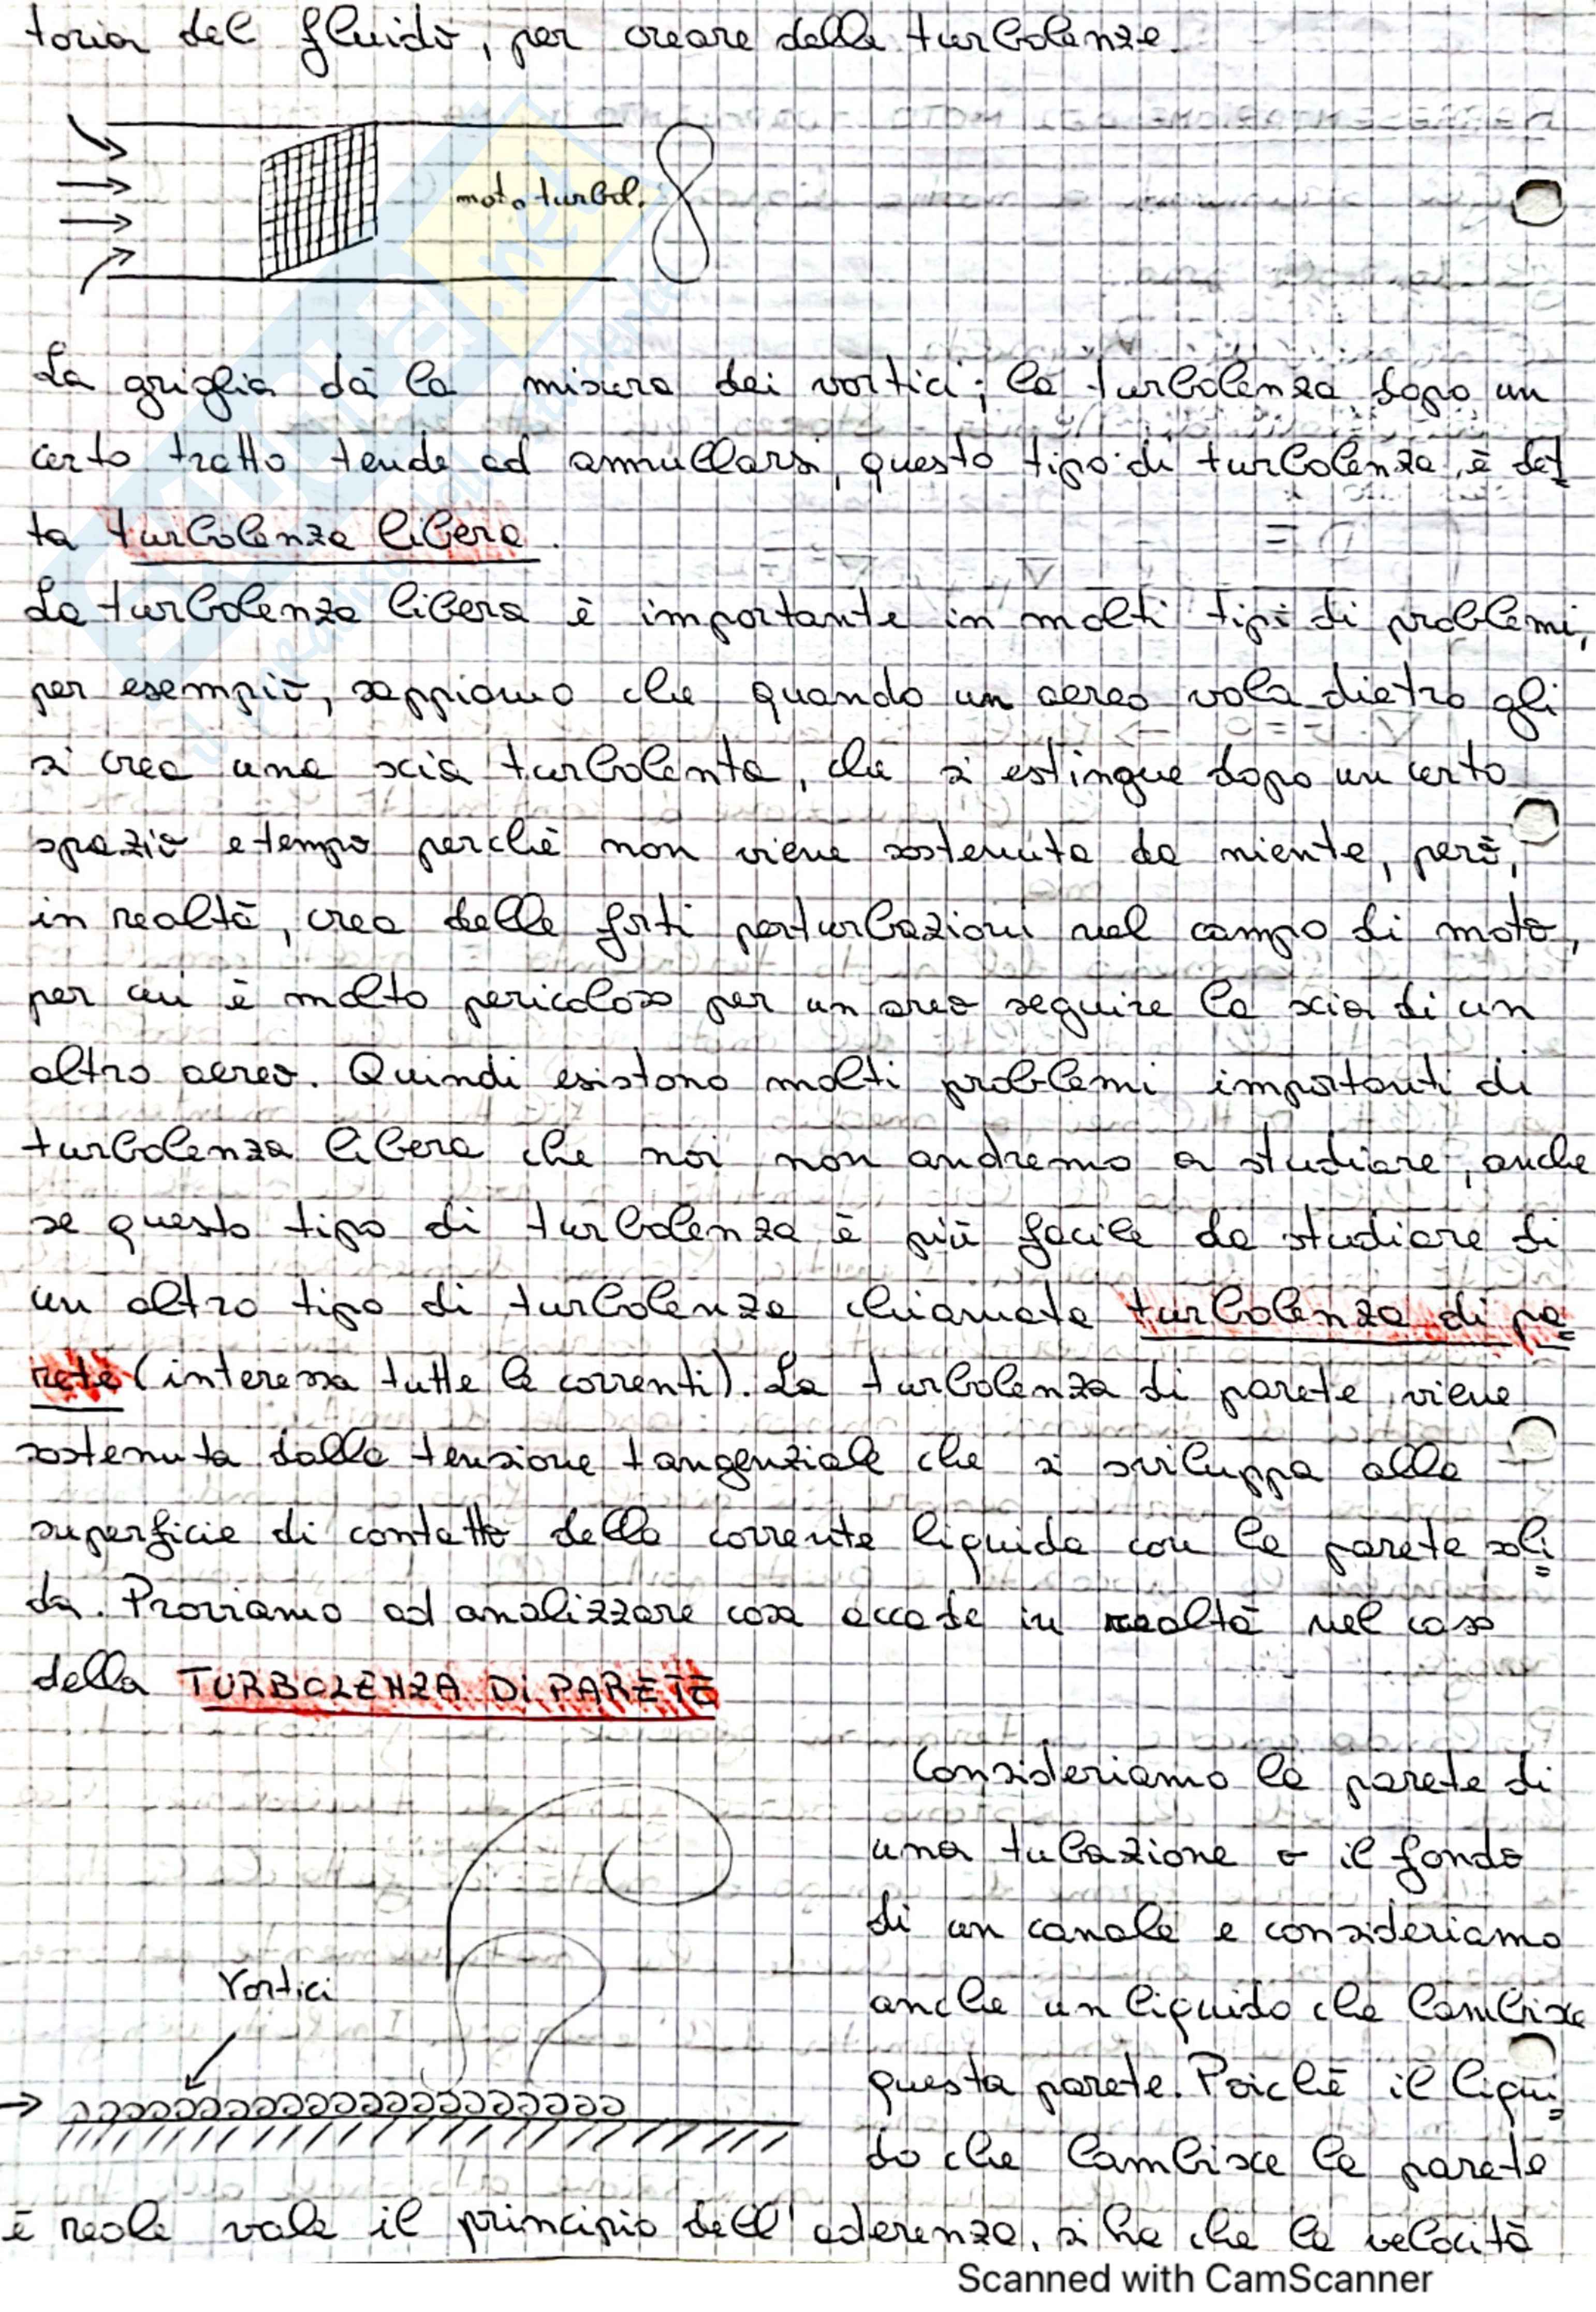 toria del fluido, per creare delle turbolenze.
moto turbol.
La griglia dà la misura dei vortici; la turbolenza dopo un
certo tratto tende ad annullarsi, questo tipo di turbolenza è det
ta turbolenza libera.
La turbolenza libera è importante in molti tipi di problemi,
per esempio, sappiamo che quando un aereo vola dietro gli
si crea una scia turbolenta, che si estingue dopo un certo
spazio e tempo perchè non viene sostenuta da niente, però,
in realtà, crea delle forti perturbazioni nel campo di moto,
per cui è molto pericoloso per un areo seguire la scia di un
altro aereo. Quindi esistono molti problemi importanti di
turbolenza libera che noi non andremo a studiare, anche
se questo tipo di turbolenza è più facile da studiare di
un altro tipo di turbolenza chiamata turbolenza di pa=
rete (interessa tutte le correnti). La turbolenza di parete viene
sostenuta dalla tensione tangenziale che si sviluppa alla
superficie di contatto della corrente liquida con la parete soli=
da. Proviamo ad analizzare cosa accade in realtà nel caso
della TURBOLENZA DI PARETE
Consideriamo la parete di
una tubazione o il fondo
di un canale e consideriamo
Vortici
anche un liquido che lambisce
questa parete. Poichè il liqui=
do che lambisce la parete
è reale vale il principio dell'aderenza, si ha che la velocità
Scanned with CamScanner